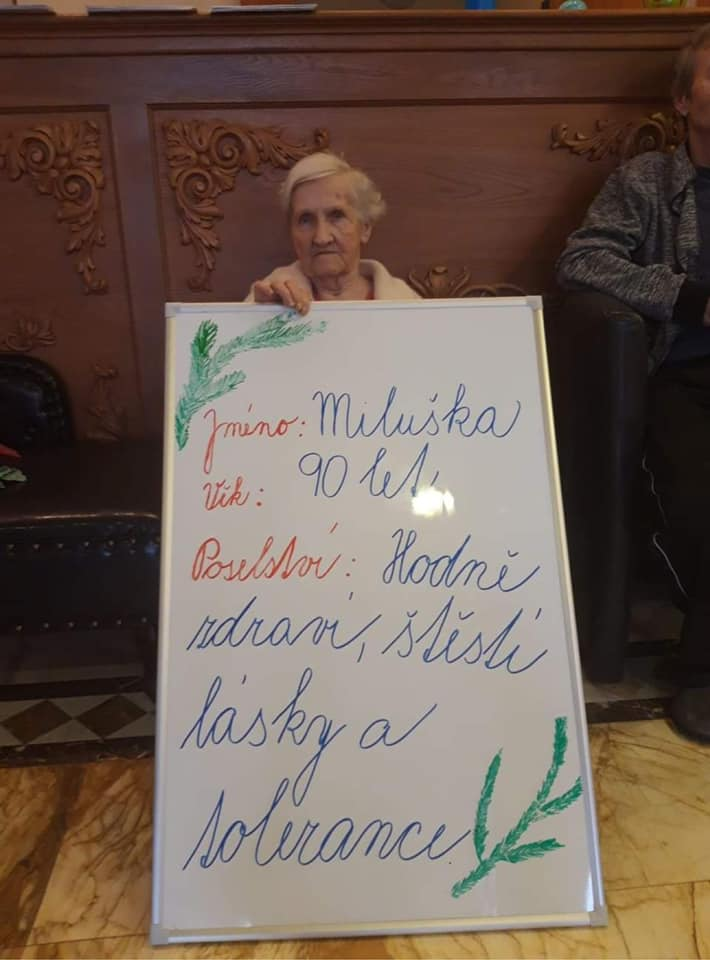 Jméno: Miluška
Věk: 90 let
Poselství: Hodně
zdraví, štěstí
lásky a
tolerance